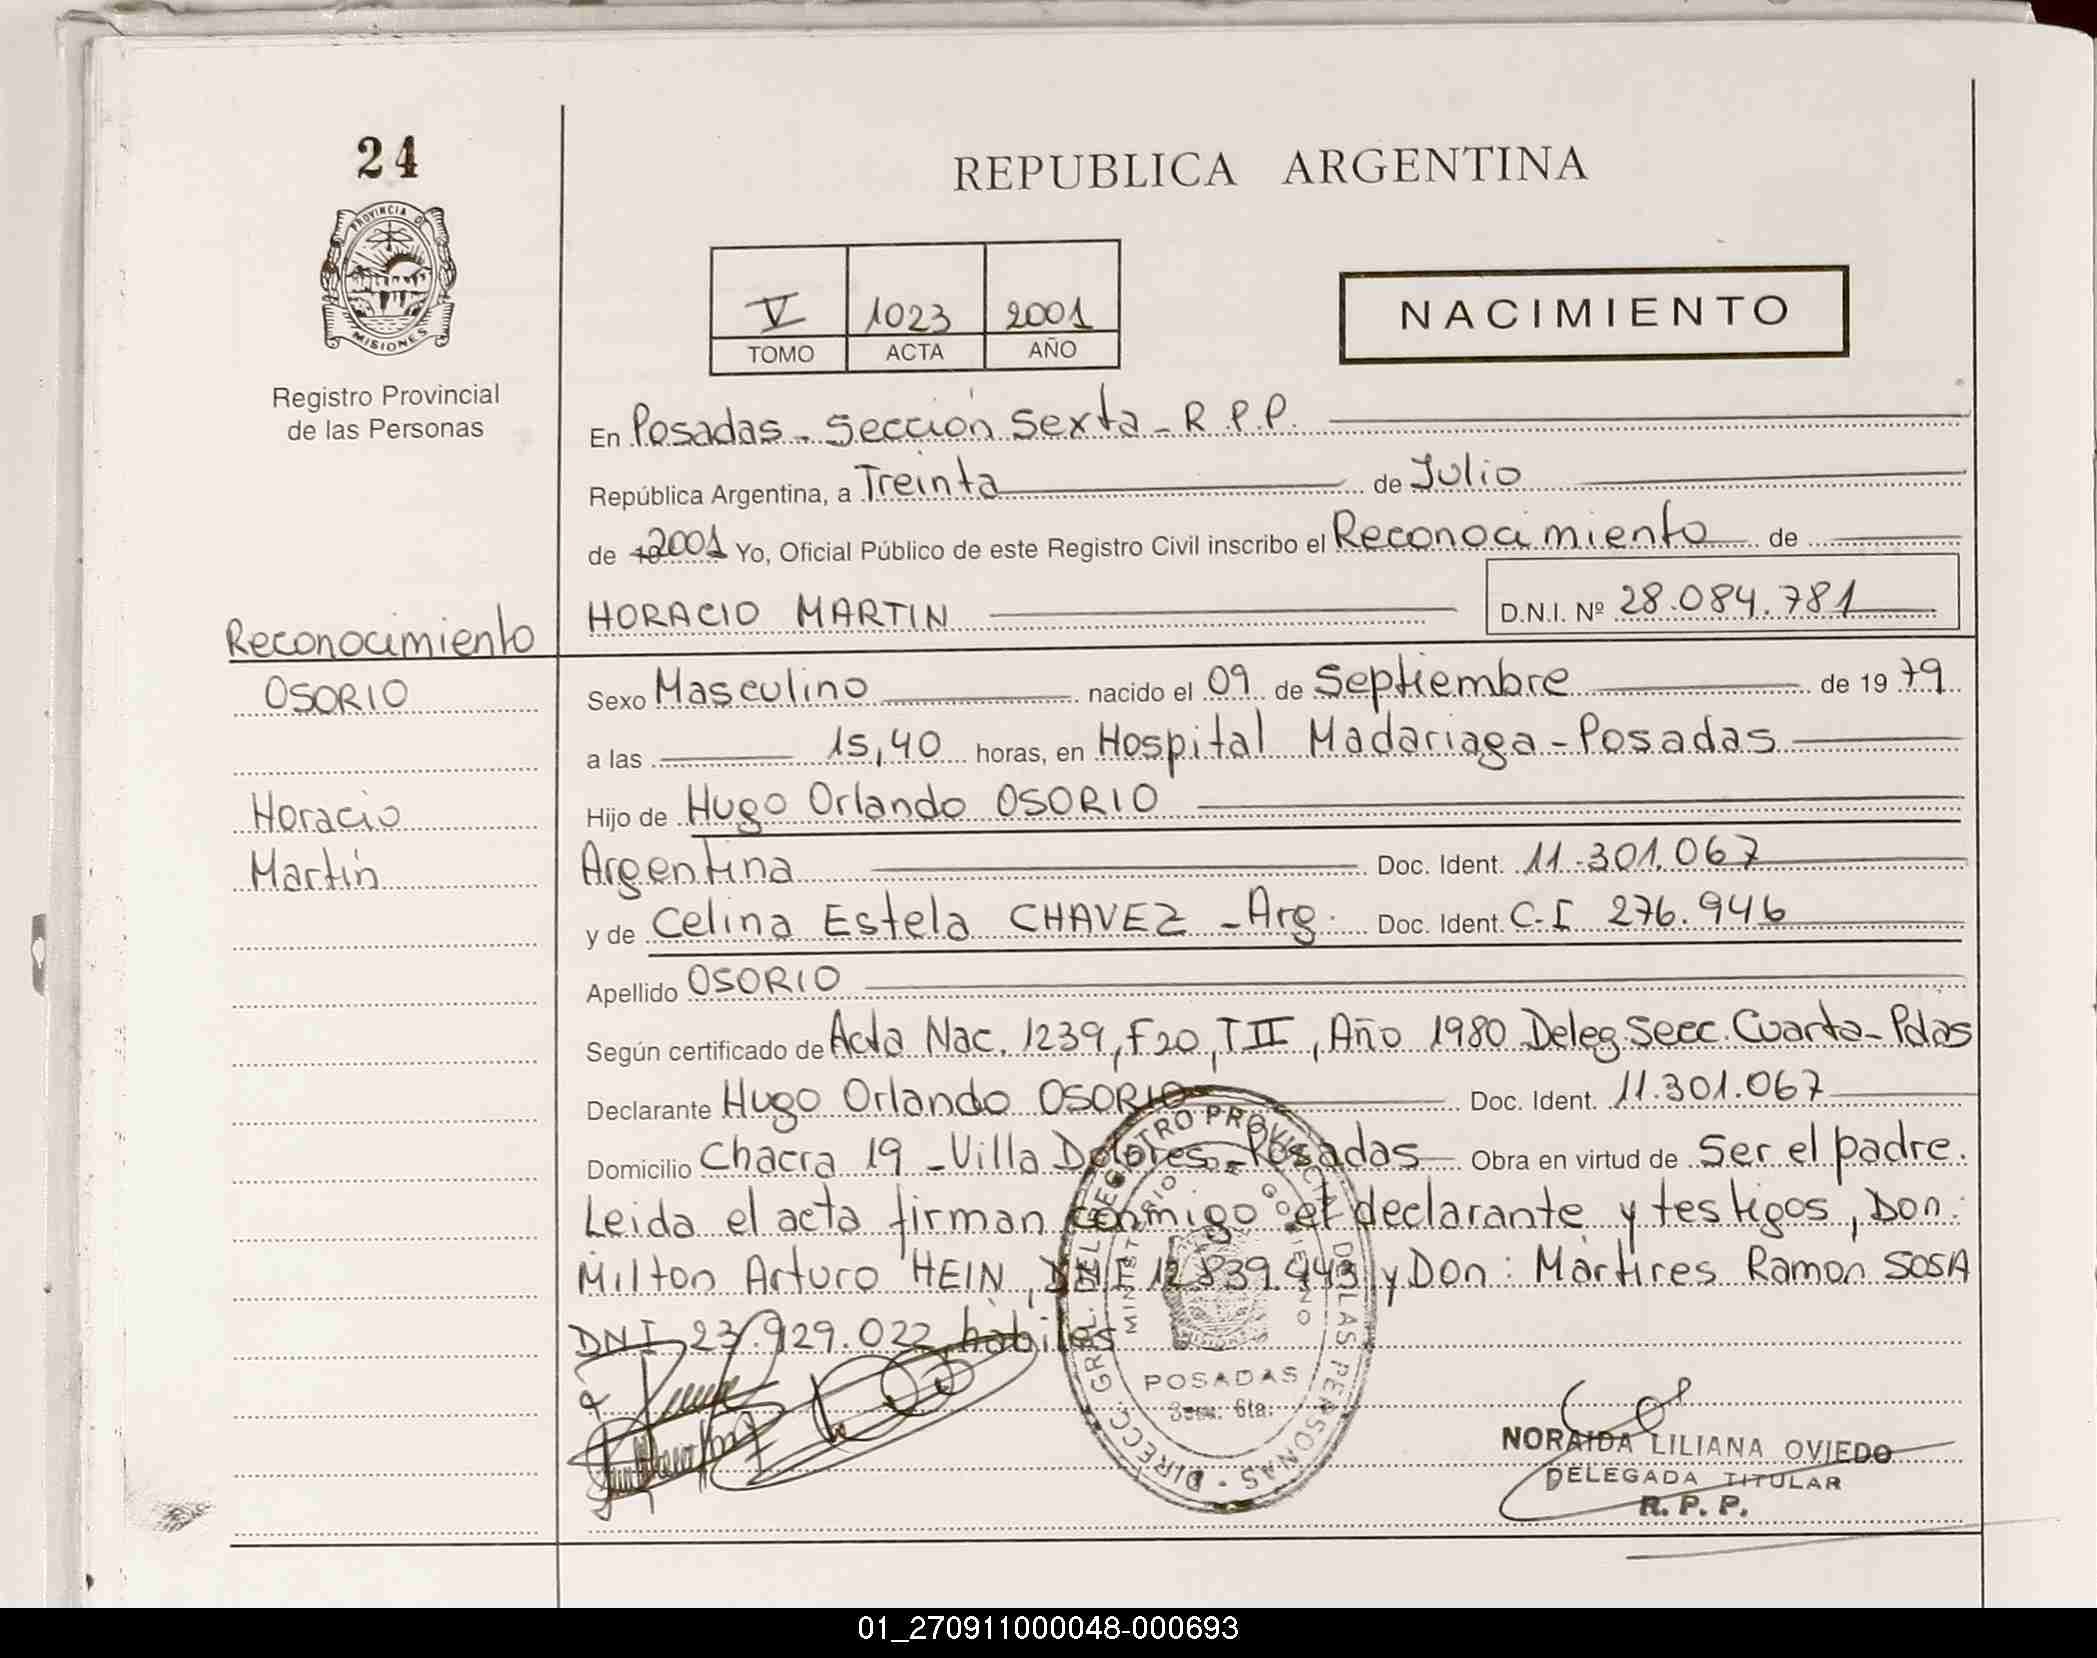 24
PROVINCIA DE
MISIONES
Registro Provincial
de las Personas
REPUBLICA ARGENTINA
V 1023 2001
TOMO ACTA AÑO
NACIMIENTO
En Posadas - Sección Sexta - R.P.P.
República Argentina, a Treinta de Julio
de 19 2001 Yo, Oficial Público de este Registro Civil inscribo el Reconocimiento de
HORACIO MARTIN D.N.I. Nº 28.084.781
Reconocimiento
OSORIO
Horacio
Martín
Sexo Masculino nacido el 09 de Septiembre de 19 79
a las 15,40 horas, en Hospital Madariaga - Posadas
Hijo de Hugo Orlando OSORIO
Argentina Doc. Ident. 11.301.067
y de Celina Estela CHAVEZ - Arg. Doc. Ident. C.I 276.946
Apellido OSORIO
Según certificado de Acta Nac. 1239, F20, T II, Año 1980 Deleg. Secc. Cuarta - Pdas
Declarante Hugo Orlando OSORIO Doc. Ident. 11.301.067
Domicilio Chacra 19 - Villa Dolores - Posadas Obra en virtud de Ser el padre.
Leida el acta firman conmigo el declarante y testigos, Don:
Milton Arturo HEIN, DNI 12.839.443 y Don: Mártires Ramon SOSA
DNI 23.929.022 habiles
DIRECC. GRAL. DEL REGISTRO PROVINCIAL DE LAS PERSONAS
MINISTERIO DE GOBIERNO
POSADAS
Secc. 6ta.
NORAIDA LILIANA OVIEDO
DELEGADA TITULAR
R. P. P.
01_270911000048-000693